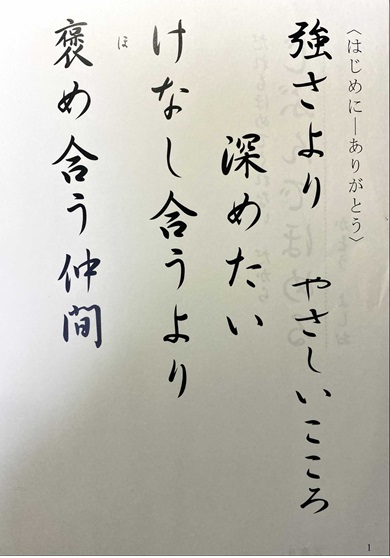 〈はじめに―ありがとう〉
強さより　やさしいこころ
深めたい
けなし合うより
ほ
褒め合う仲間
1